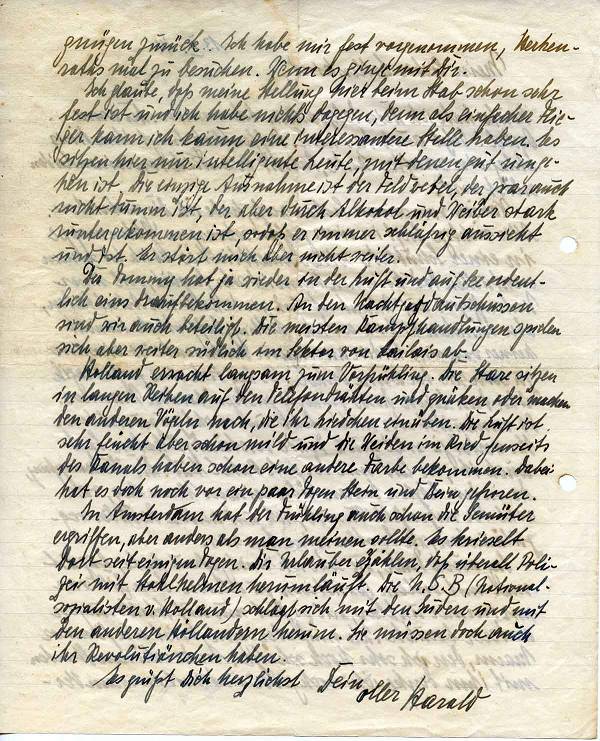 gnügen zurück. Ich habe mir fest vorgenommen, Merken-
raths mal zu besuchen. Wenn es ginge mit Dir.
Ich glaube, daß meine Stellung hier beim Stab schon sehr
fest ist und ich habe nichts dagegen, denn als einfacher Flie-
ger kann ich kaum eine interessantere Stelle haben. Es
sitzen hier nur intelligente Leute, mit denen gut umge-
hen ist. Die einzige Ausnahme ist der Feldwebel, der zwar auch
nicht dumm ist, der aber durch Alkohol und Weiber stark
runtergekommen ist, sodaß er immer schläfrig aussieht
und ist. Er stört mich aber nicht weiter.
Der Tommy hat ja wieder in der Luft und auf See ordent-
lich eins draufbekommen. An den Nachtjagdabschüssen
sind wir auch beteiligt. Die meisten Kampfhandlungen spielen
sich aber weiter südlich im Sektor von Calais ab.
Holland erwacht langsam zum Vorfrühling. Die Stare sitzen
in langen Reihen auf den Telefondrähten und quaken oder machen
den anderen Vögeln nach, die ihr Liedchen einüben. Die Luft ist
sehr feucht aber schon mild und die Weiden im Ried jenseits
des Kanals haben schon eine andere Farbe bekommen. Dabei
hat es doch noch vor ein paar Tagen Stein und Bein gefroren.
In Amsterdam hat der Frühling auch schon die Gemüter
ergriffen, aber anders als man meinen sollte. Es kriselt
dort seit einigen Tagen. Die Urlauber erzählen, daß überall Poli-
zei mit Stahlhelmen herumläuft. Die N.S.B (National-
sozialisten v. Holland) schlägt sich mit den Juden und mit
den anderen Holländern herum. Sie müssen doch auch
ihr Revolutiönchen haben.
Es grüßt Dich herzlichst Dein
oller Harald